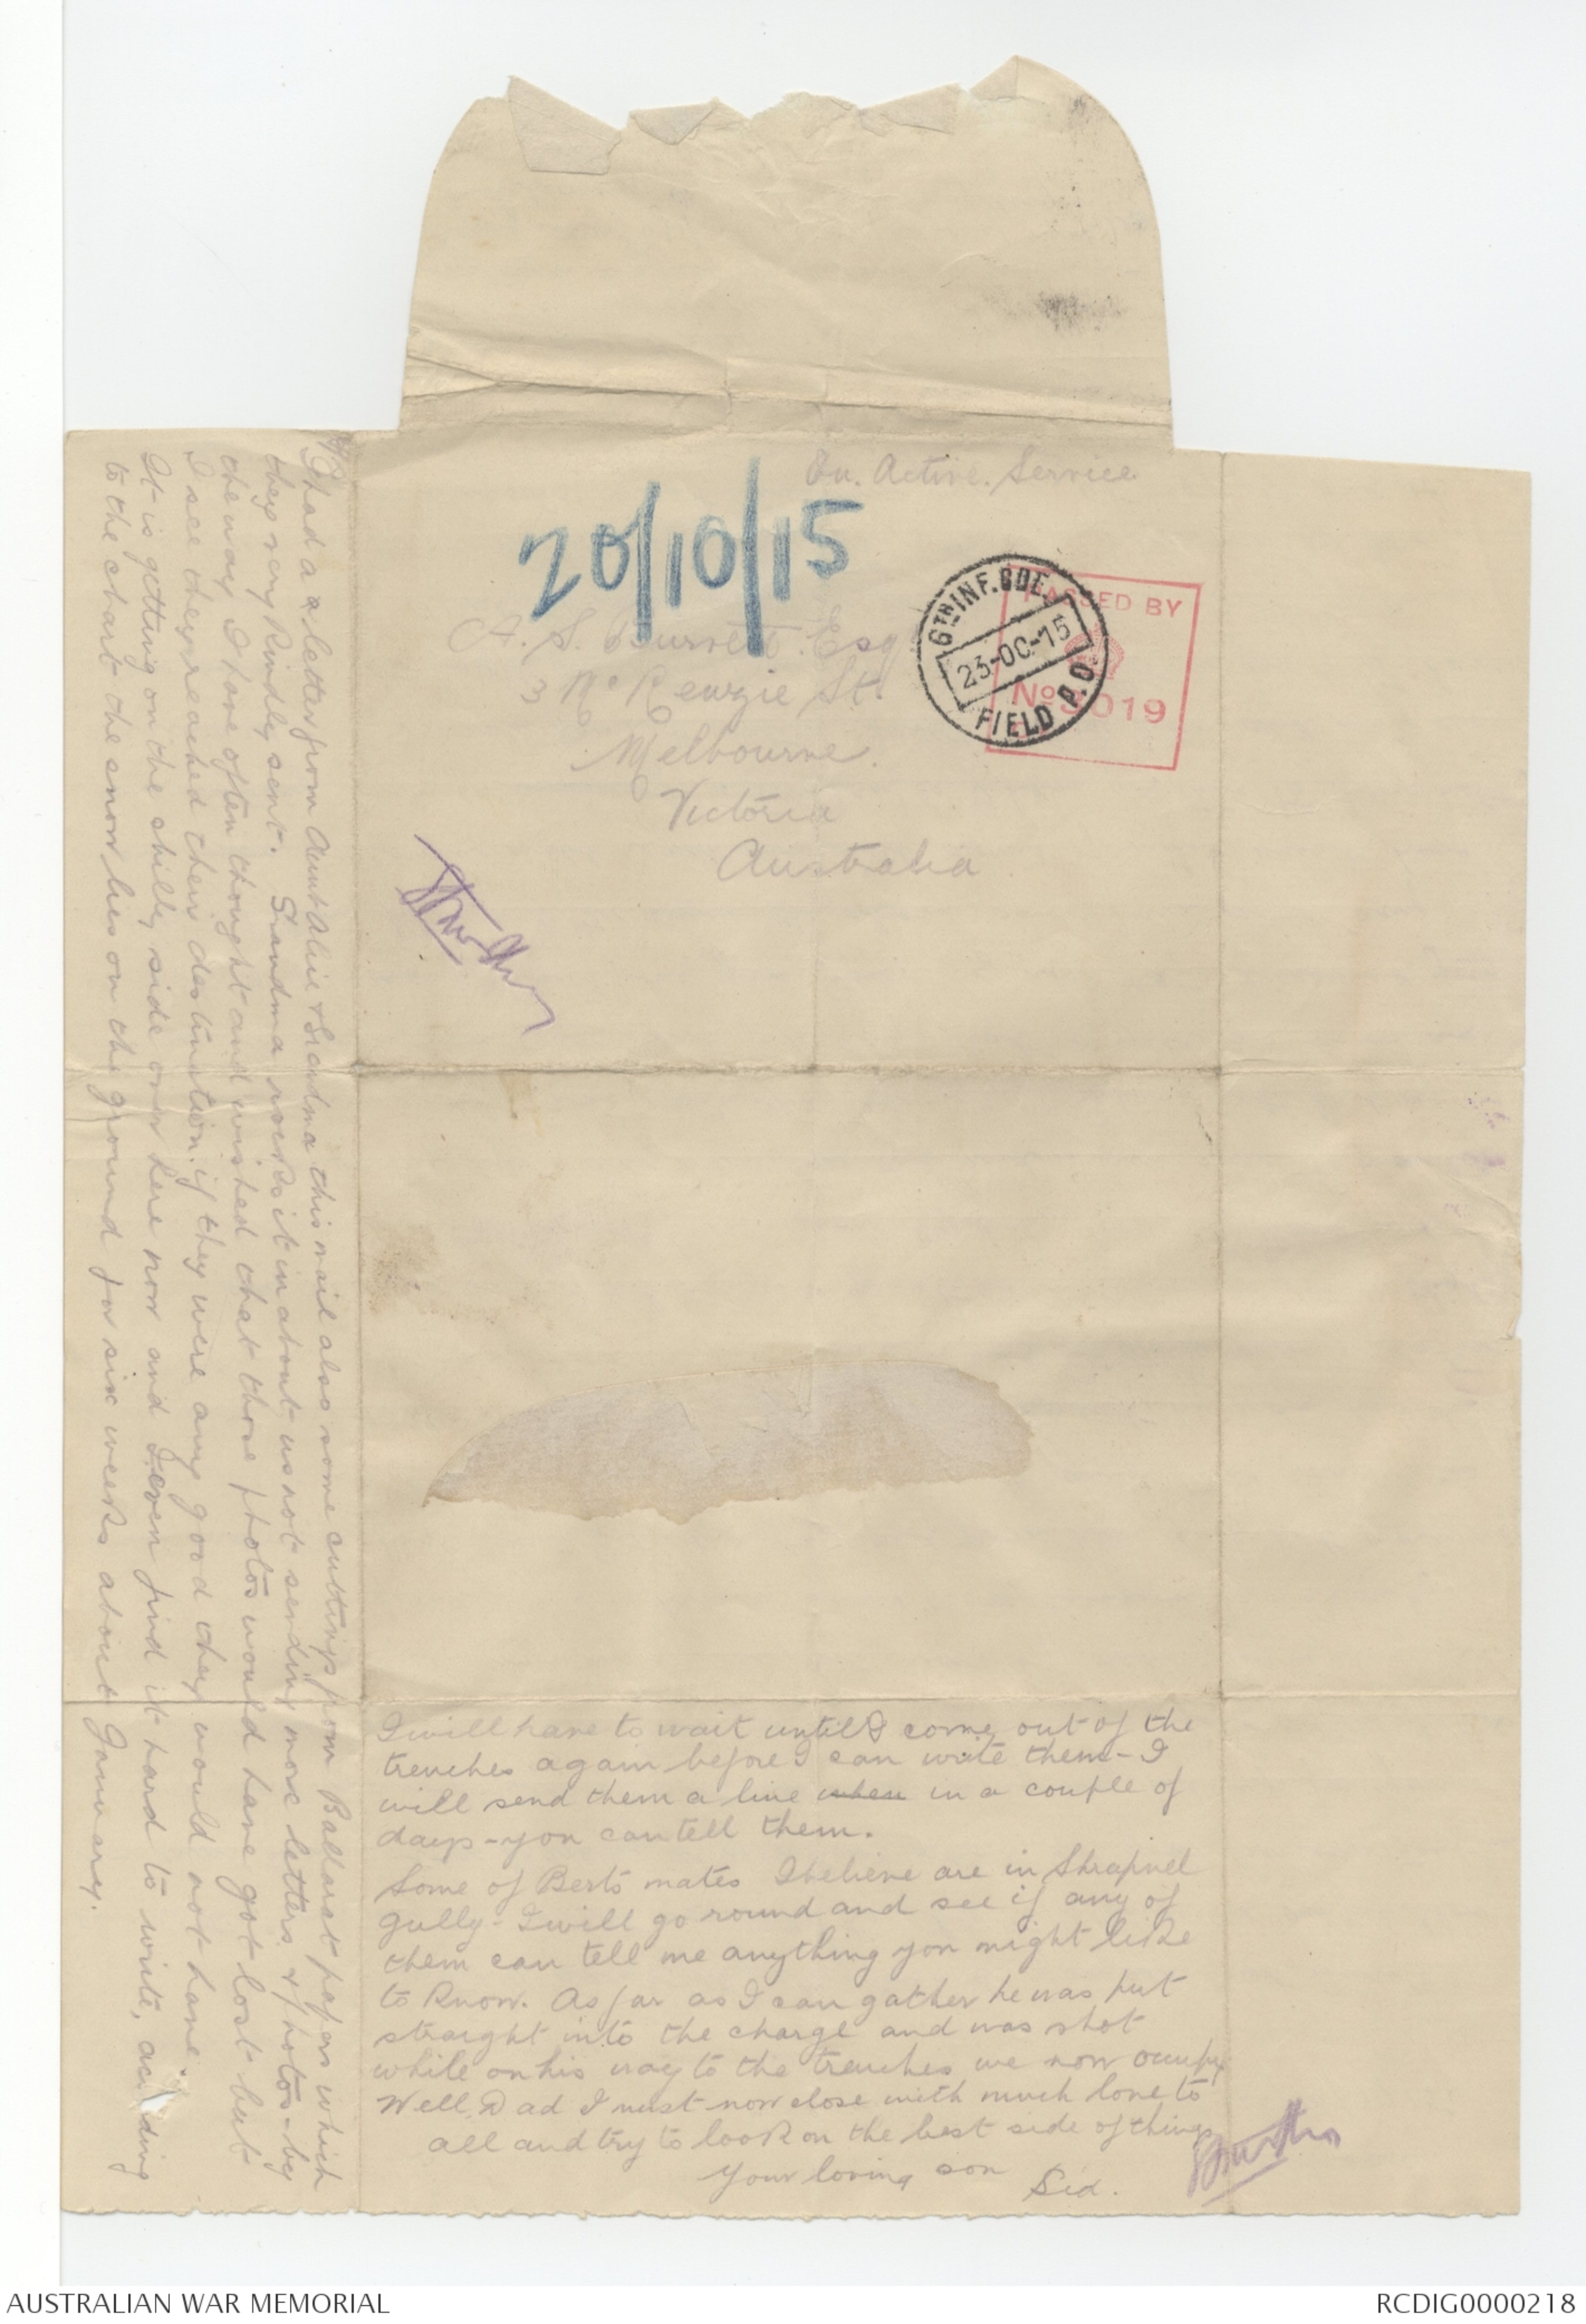 On. Active. Service
20/10/15
A. S. Burrett. Esq
3 McKenzie St.
Melbourne.
Victoria
Australia
6TH INF. BDE.
23-OC-15
FIELD P.O.
PASSED BY
No 3019
I had a a letter from Aunt Alice & Grandma this mail also some cuttings from Ballarat papers which
they very kindly sent. Grandma rocks it in about us not sending more letters & photos - by
the way I have often thought and wished that those photos would have got lost but
I see they reached their destination. if they were any good they would not have.
It is getting on the chilly side over here now and I even find it hard to write, according
to the chart the snow lies on the ground for six weeks about January.
I will have to wait until I come out of the
trenches again before I can write them - I
will send them a line when in a couple of
days - you can tell them.
Some of Berts mates I believe are in Shrapnel
gully - I will go round and see if any of
them can tell me anything you might like
to know. As far as I can gather he was put
straight into the charge and was shot
while on his way to the trenches we now occupy
Well Dad I must now close with much love to
all and try to look on the best side of things
Your loving son Sid.
AUSTRALIAN WAR MEMORIAL
RCDIG0000218